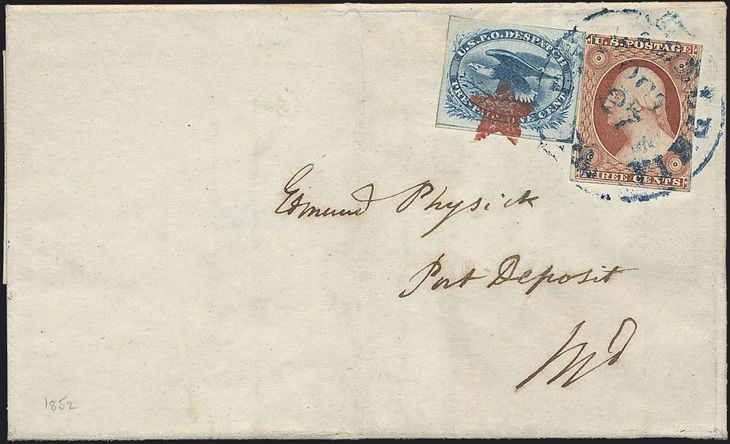 U.S.P.O. DESPATCH
PRE-PAID ONE CENT
U.S. POSTAGE
THREE CENTS
Edmund Physick
Port Deposit
Md
1852